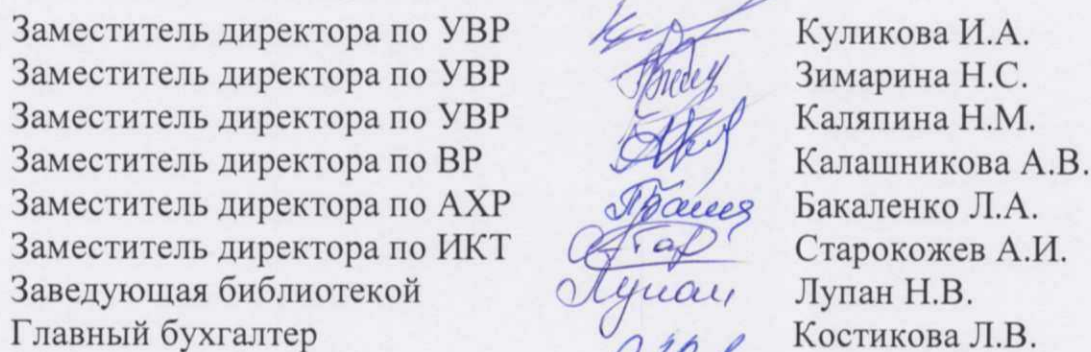 Заместитель директора по УВР Куликова И.А.
Заместитель директора по УВР Зимарина Н.С.
Заместитель директора по УВР Каляпина Н.М.
Заместитель директора по ВР Калашникова А.В.
Заместитель директора по АХР Бакаленко Л.А.
Заместитель директора по ИКТ Старокожев А.И.
Заведующая библиотекой Лупан Лупан Н.В.
Главный бухгалтер Костикова Л.В.